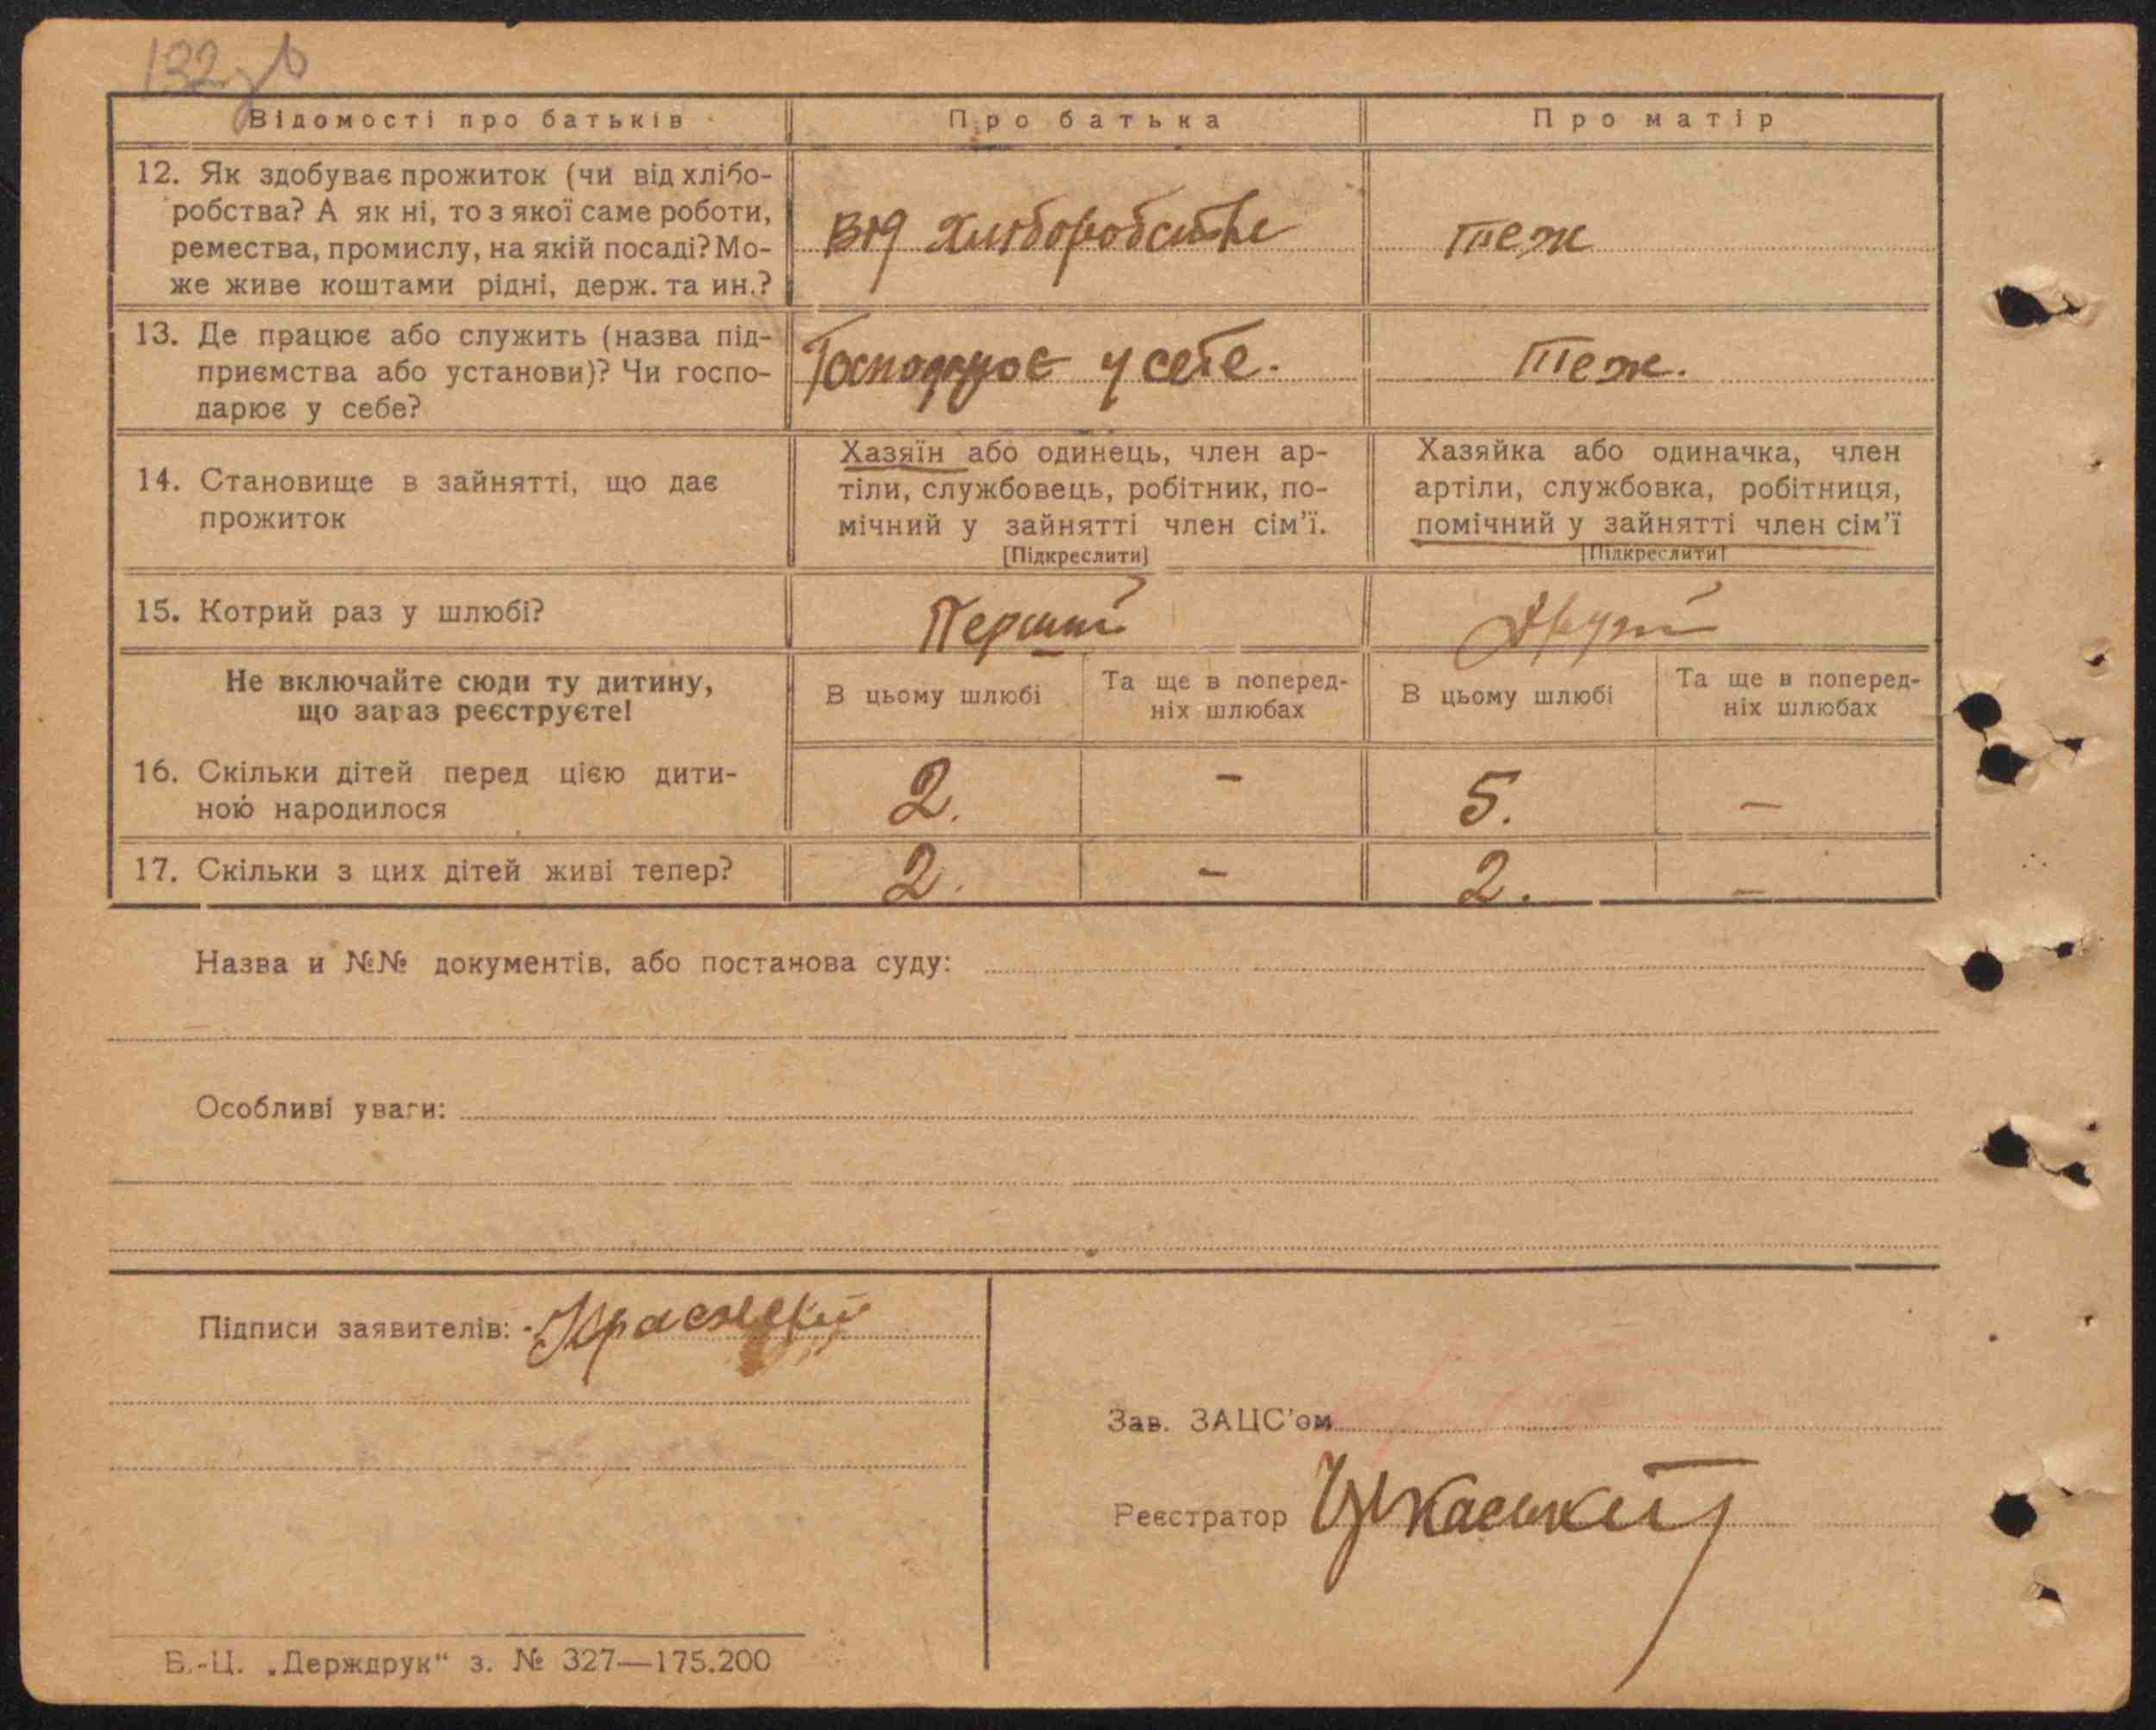 132 зв
Відомості про батьків
Про батька
Про матір
12. Як здобуває прожиток (чи від хлібо-
робства? А як ні, то з якої саме роботи,
ремества, промислу, на якій посаді? Мо-
же живе коштами рідні, держ. та ин.?
від хліборобства
теж
13. Де працює або служить (назва під-
приємства або установи)? Чи госпо-
дарює у себе?
Господарює у себе.
Теж.
14. Становище в зайнятті, що дає
прожиток
Хазяїн або одинець, член ар-
тіли, службовець, робітник, по-
мічний у зайнятті член сім'ї.
[Підкреслити]
Хазяйка або одиначка, член
артіли, службовка, робітниця,
помічний у зайнятті член сім'ї
[Підкреслити]
15. Котрий раз у шлюбі?
Перший
Другий
Не включайте сюди ту дитину,
що зараз реєструєте!
В цьому шлюбі
Та ще в поперед-
ніх шлюбах
В цьому шлюбі
Та ще в поперед-
ніх шлюбах
16. Скільки дітей перед цією дити-
ною народилося
2.
-
5.
-
17. Скільки з цих дітей живі тепер?
2.
-
2.
-
Назва и №№ документів, або постанова суду:
Особливі уваги:
Підписи заявителів:
Зав. ЗАЦС'ом
Реєстратор
Б.-Ц. „Держдрук“ з. № 327—175.200